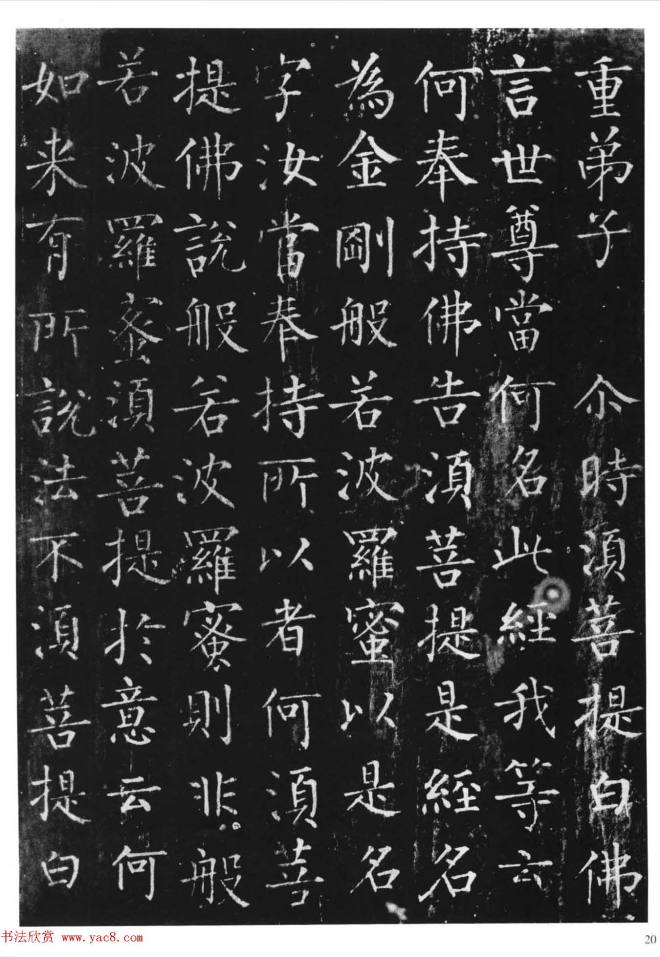 重弟子 尒時湏菩提白佛
言世尊當何名此經我等云
何奉持佛告湏菩提是經名
為金剛般若波羅蜜以是名
字汝當奉持所以者何湏菩
提佛說般若波羅蜜則非般
若波羅蜜湏菩提於意云何
如来有所說法不湏菩提白
书法欣赏 www.yac8.com
20